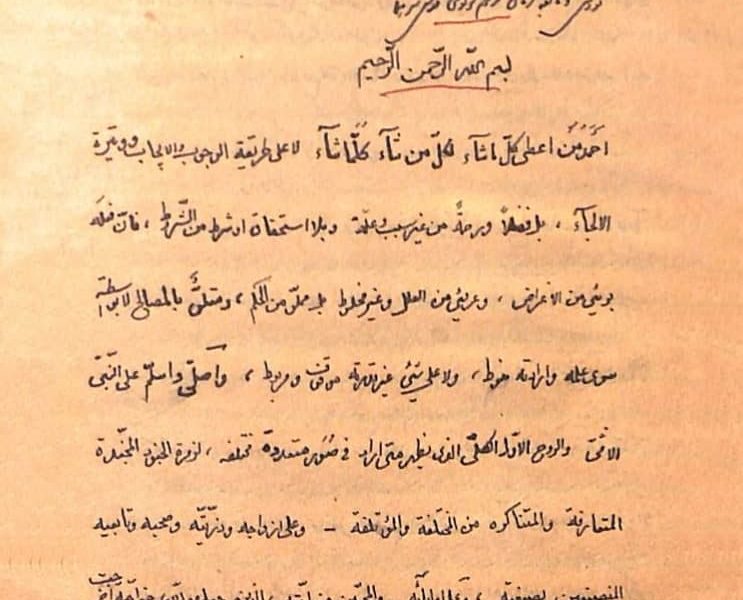 بسم الله الرحمن الرحيم
أحمد من اعطى كلّ ما شآء لكلّ من شآء كلّما شآء لا على طريقة الوجوب والايجاب ووتيرة
الالجآء ، بل فضلاً ورحمةً من غير سبب وعلّة وبلا استحقاق او شرط من الشّروط ، فانّ فعله
بريئ من الاغراض ، وعريّ من العلل وغير مخلوط بل مملوّ من الحِكَم ، ومتعلّق بالمصالح لا بواسطة
سوى علمه وارادته منوط ، ولا على شيئ غير قدرته موقوف ومربوط ، واصلّى واسلّم على النّبيّ
الامّيّ والروح الاوّل الكلّيّ الذى يظهر متى اراد فى صُوَر متعدّدة مختلفه ، لزمرة الجنود المجنّدة
المتعارفة والمتناكره من المختلفة والمؤتلفة – وعلى ازواجه وذرّيّته وصحبه وتابعيه